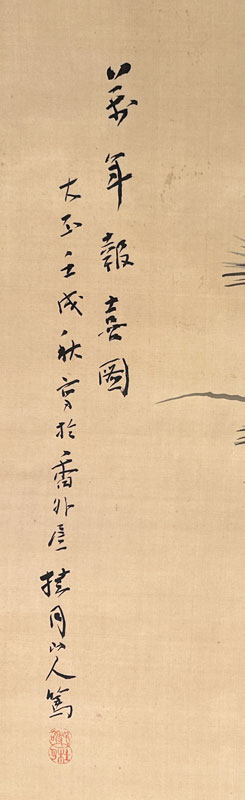 萬年報喜圖
大正壬戌秋寫於香外廬桂月山人篤